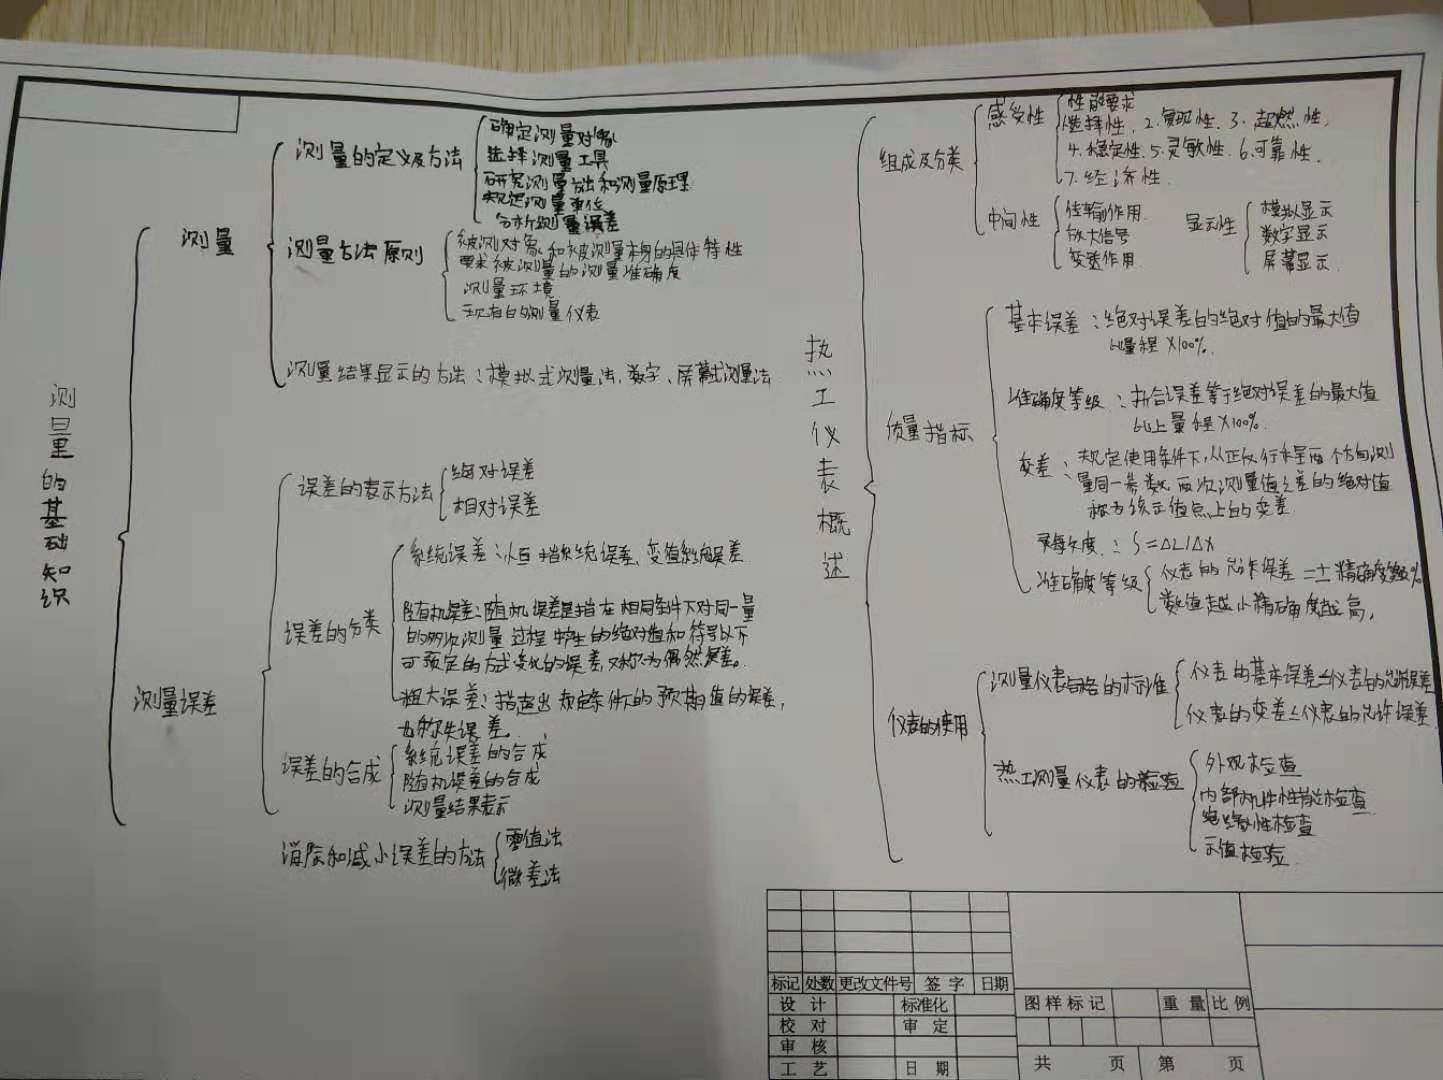 测量的基础知识
测量
测量的定义及方法
确定测量对象
选择测量工具
研究测量方法和测量原理
规定测量单位
分析测量误差
测量方法原则
被测对象和被测量本身的具体特性
要求被测量的测量准确度
测量环境
现有的测量仪表
测量结果显示的方法：模拟式测量法、数字、屏幕式测量法
测量误差
误差的表示方法
绝对误差
相对误差
误差的分类
系统误差：恒值系统误差、变值系统误差
随机误差：随机误差是指在相同条件下对同一量
的多次测量过程中产生的绝对值和符号以下
可预定的方式变化的误差，又称为偶然误差。
粗大误差：指超出规定条件下的预期值的误差，
也称失误差。
误差的合成
系统误差的合成
随机误差的合成
测量结果表示
消除和减小误差的方法
零值法
微差法
热工仪表概述
组成及分类
感受性
性能要求
1.选择性、2.复现性、3、超燃性、
4.稳定性、5.灵敏性、6.可靠性、
7.经济性.
中间性
传输作用
放大信号
变送作用
显示性
模拟显示
数字显示
屏幕显示
质量指标
基本误差：绝对误差的绝对值的最大值
比量程X100%.
准确度等级：折合误差等于绝对误差的最大值
比上量程X100%.
变差：规定使用条件下，从正反行程两个方向测
量同一参数，两次测量值之差的绝对值
称为该示值点上的变差
灵敏度：S=ΔL/ΔX
准确度等级
仪表的允许误差=±精确度等级%
数值越小精确度越高，
仪表的使用
测量仪表合格的标准
仪表的基本误差≤仪表的允许误差
仪表的变差≤仪表的允许误差
热工测量仪表的检验
外观检查
内部机件性能检查
绝缘性检查
示值检验
标记 处数 更改文件号 签 字 日期
设 计 标准化
校 对 审 定
审 核
工 艺 日 期
图样标记 重 量 比 例
共 页 第 页